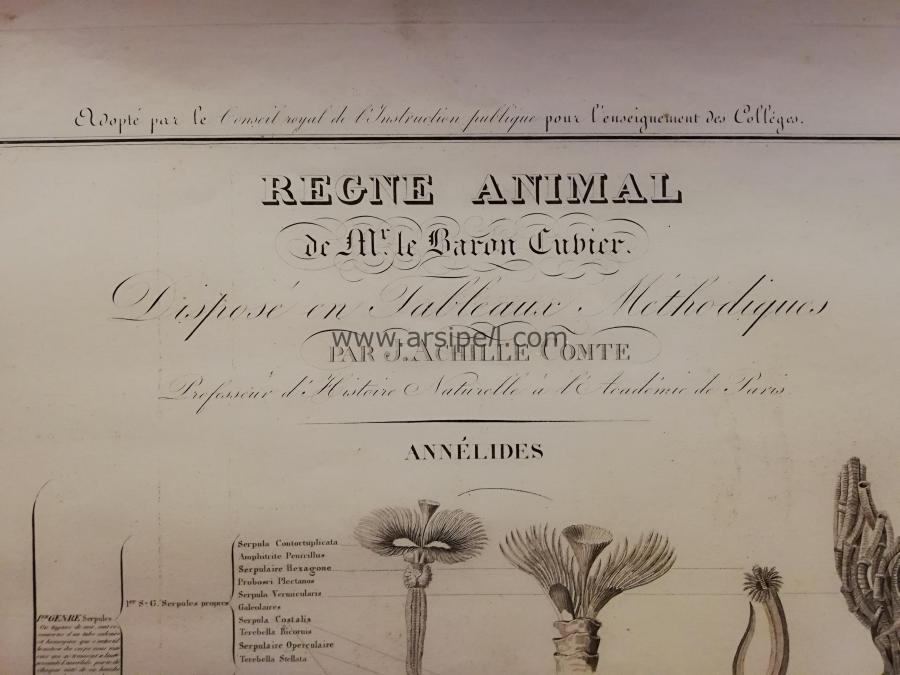 Adopté par le Conseil royal de l'Instruction publique pour l'enseignement des Colléges.
REGNE ANIMAL
de Mr. le Baron Cuvier.
Disposé en Tableaux Méthodiques
www.arsipel.com
PAR J. ACHILLE COMTE
Professeur d'Histoire Naturelle à l'Académie de Paris
ANNÉLIDES
Serpula Contortuplicata
Amphitrite Penicillus
Serpulaire Hexagone
Probosci Plectanos
1er S-G. Serpules propres
Serpula Vermicularis
Galeolaires
Serpula Costalis
Terebella Bicornis
Serpulaire Operculaire
Terebella Stellata
1er GENRE Serpules